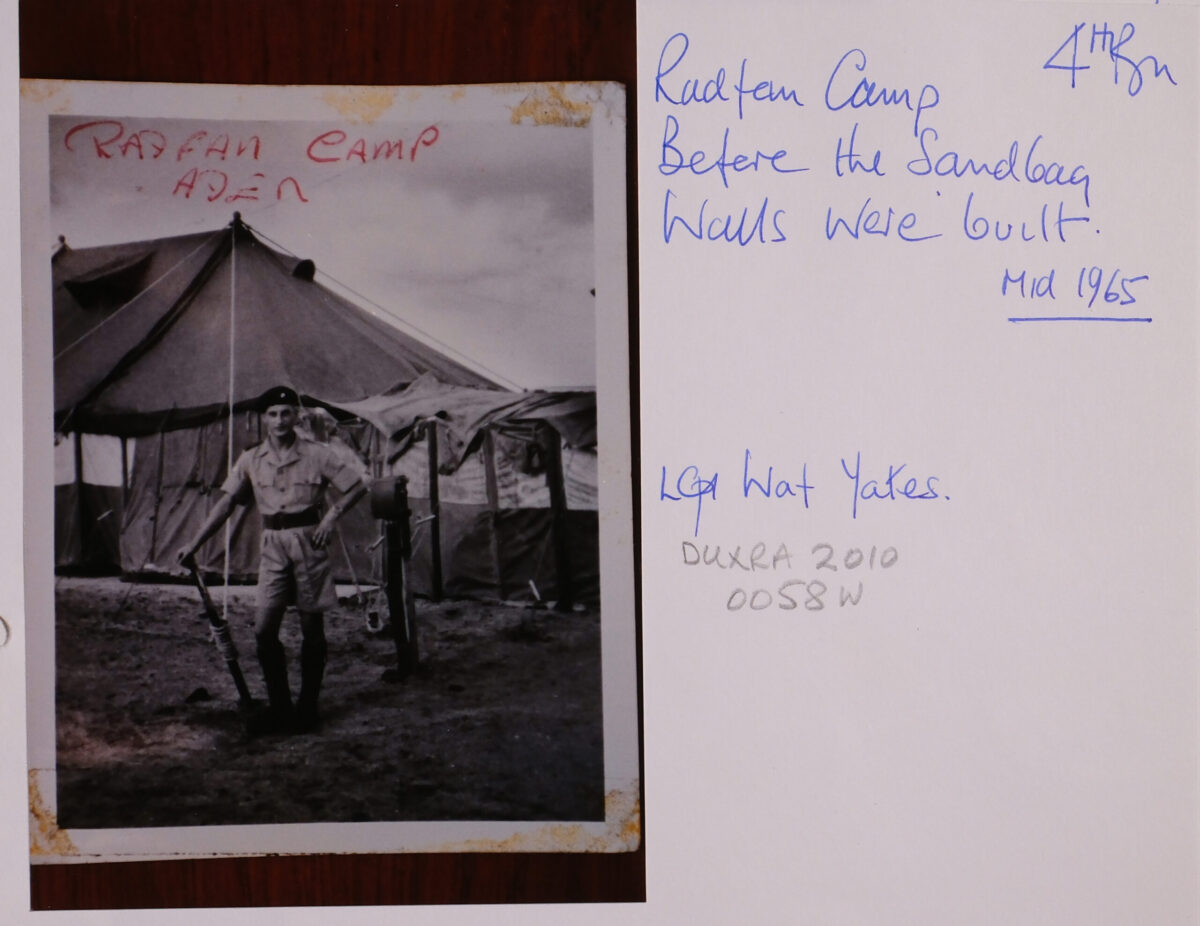 RADFAN CAMP
ADEN
4th Bn
Radfan Camp
Before the Sandbag
Walls Were built.
Mid 1965
LCpl Wat Yates.
DUXRA 2010
0058W